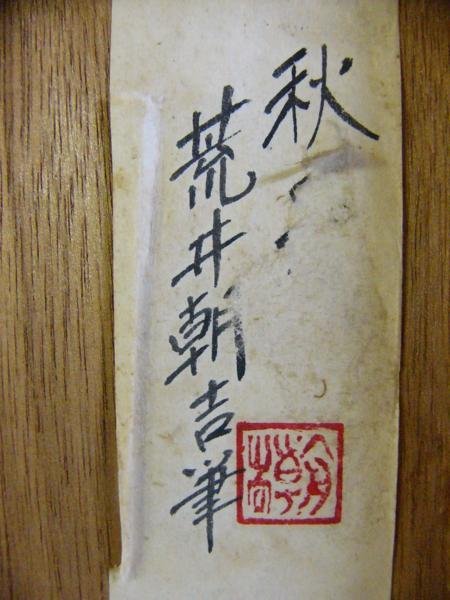 秋
荒井朝吉筆